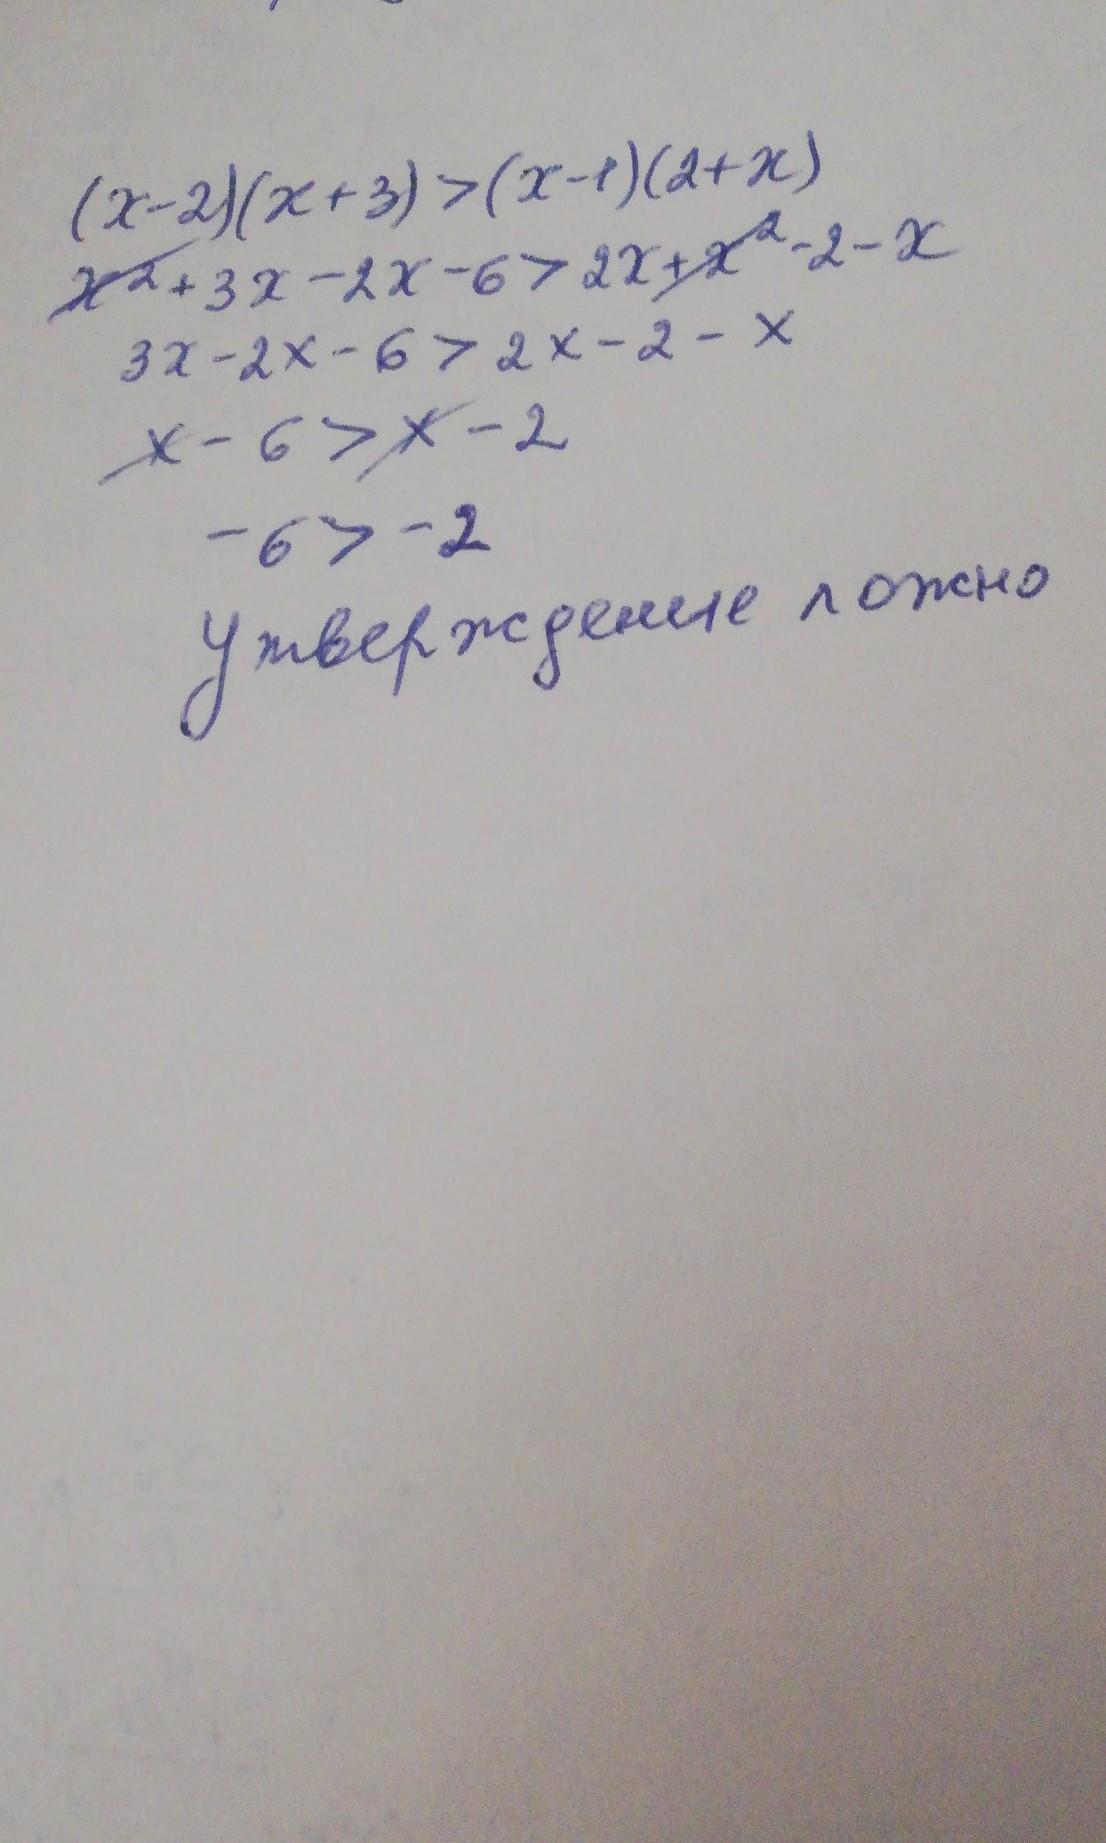 (x-2)(x+3)>(x-1)(2+x)
x²+3x-2x-6>2x+x²-2-x
3x-2x-6>2x-2-x
x-6>x-2
-6>-2
Утверждение ложно